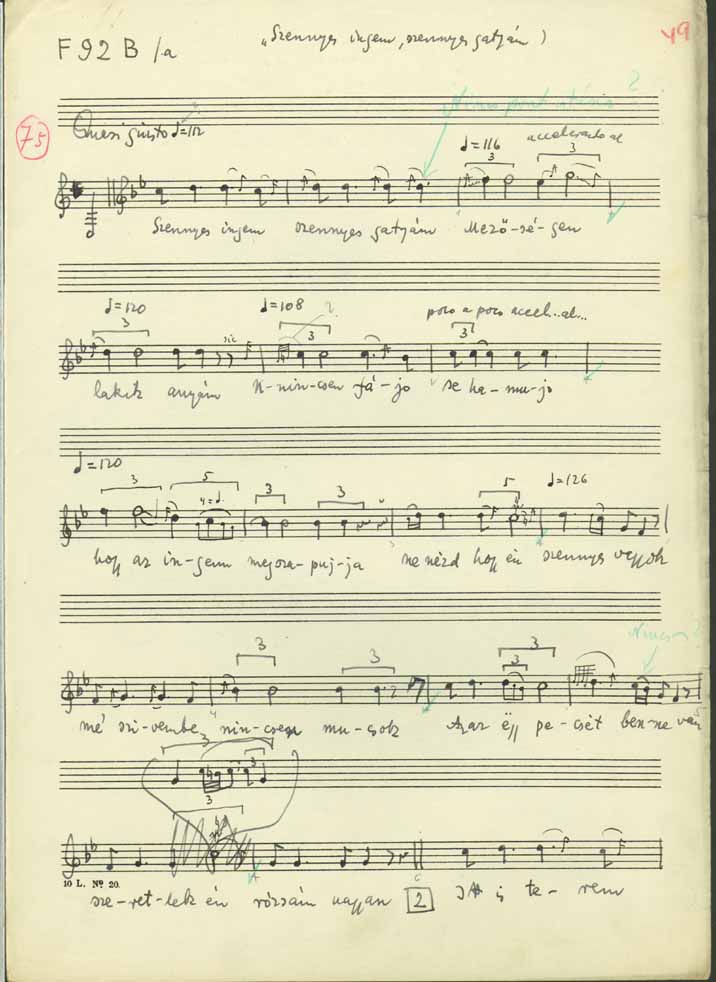 F 92 B /a
„Szennyes ingem, szennyes gatyám)
49
75
Quasi giusto ♩=112
?
♩=116
accelerando al
3
3
Szennyes ingem szennyes gatyám Mező-sé-gen
♩=120
♩=108
?
poco a poco accel..al..
3
sic
3
3
lakik anyám
N-nin-csen fá-jo se ha-mu-jo
♩=120
3
5
3
3
5
♩=126
hogy az in-gem
ne nézd hogy én szennyes vagyok
Nincs ?
3
3
3
3
mé' szi-vembe nin-csen mu-csok
Azaz ëgy pe-csét ben-ne van
3
3
3
10 L. Nº 20.
sze-ret-lek én rózsám nagyon
2
is te-rem